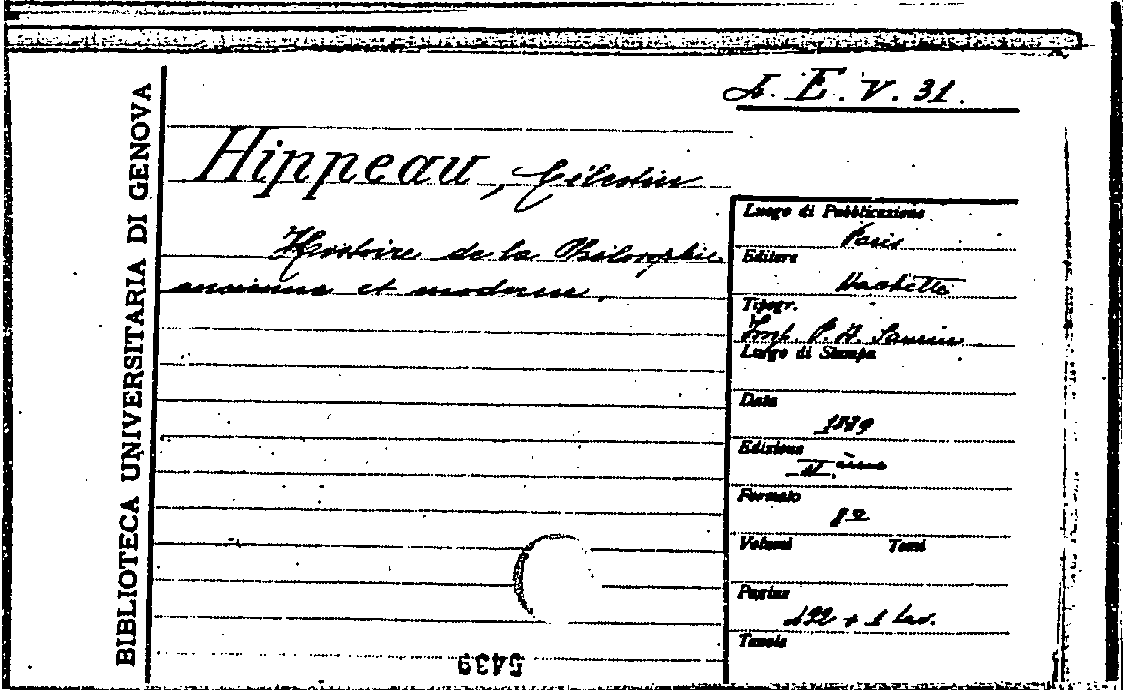 BIBLIOTECA UNIVERSITARIA DI GENOVA
E. V. 31.
Hippeau, Célestin
Histoire de la Philosophie
ancienne et moderne.
Luogo di Pubblicazione
Paris
Editore
Hachette
Tipogr.
Imp. P. A.
Luogo di Stampa
Data
Edizione
II.ème
Formato
8º
Volumi Tomi
Pagine
492 + 1 tav.
Tavole
5439